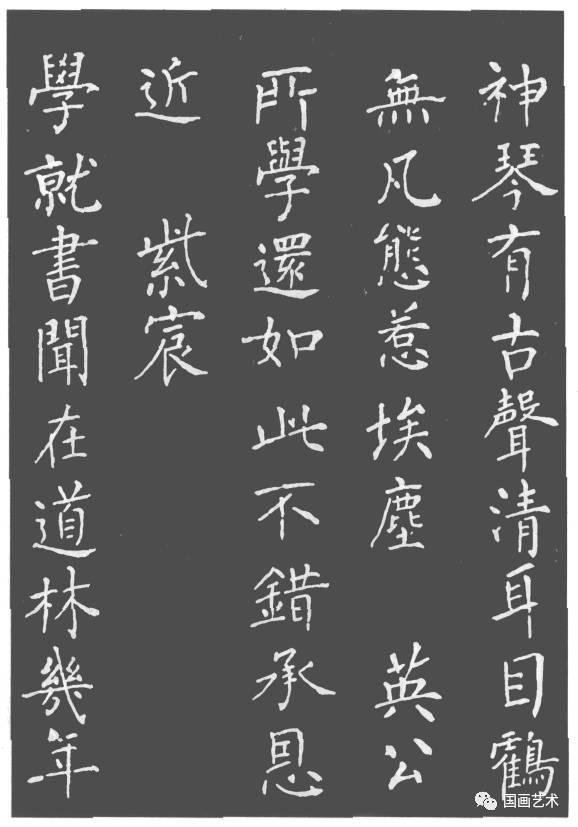 神琴有古聲清耳目鶴
無凡態惹埃塵 英公
所學還如此不錯承恩
近 紫宸
學就書聞在道林幾年
国画艺术